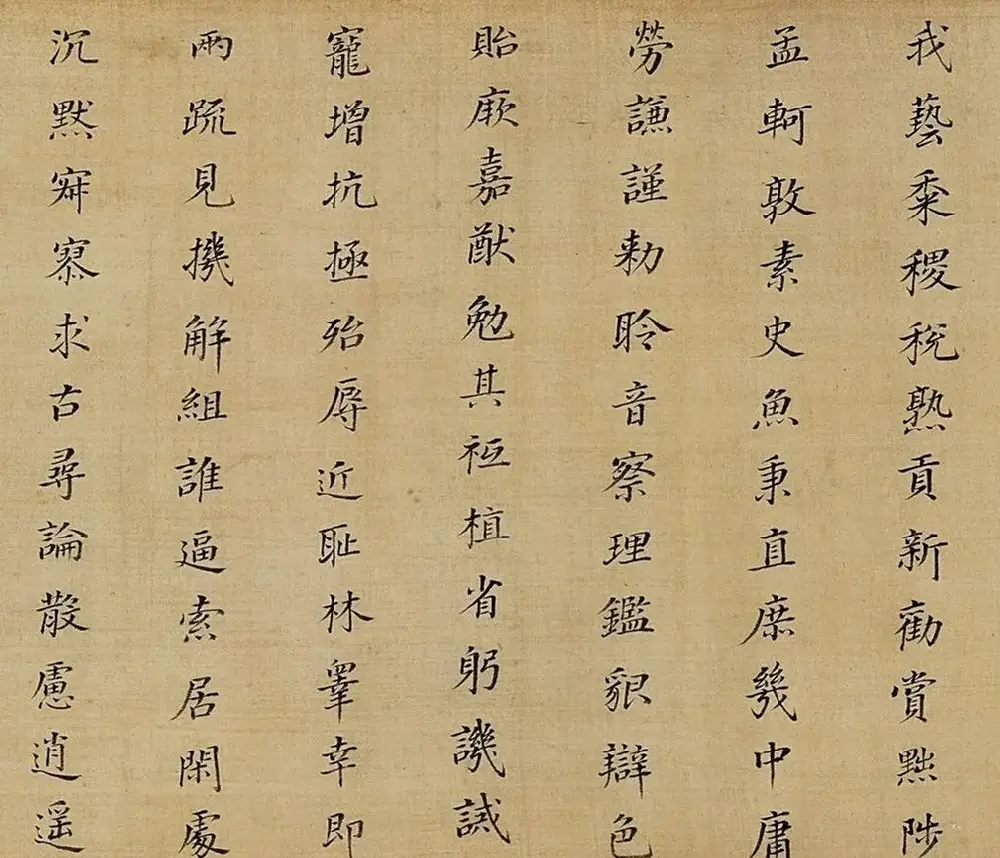 我藝黍稷稅熟貢新勸賞黜陟
孟軻敦素史魚秉直庶幾中庸
勞謙謹勅聆音察理鑑貌辯色
貽厥嘉猷勉其祗植省躬譏誡
寵增抗極殆辱近恥林睾幸即
兩疏見機解組誰逼索居閑處
沉默寂寥求古尋論散慮逍遥